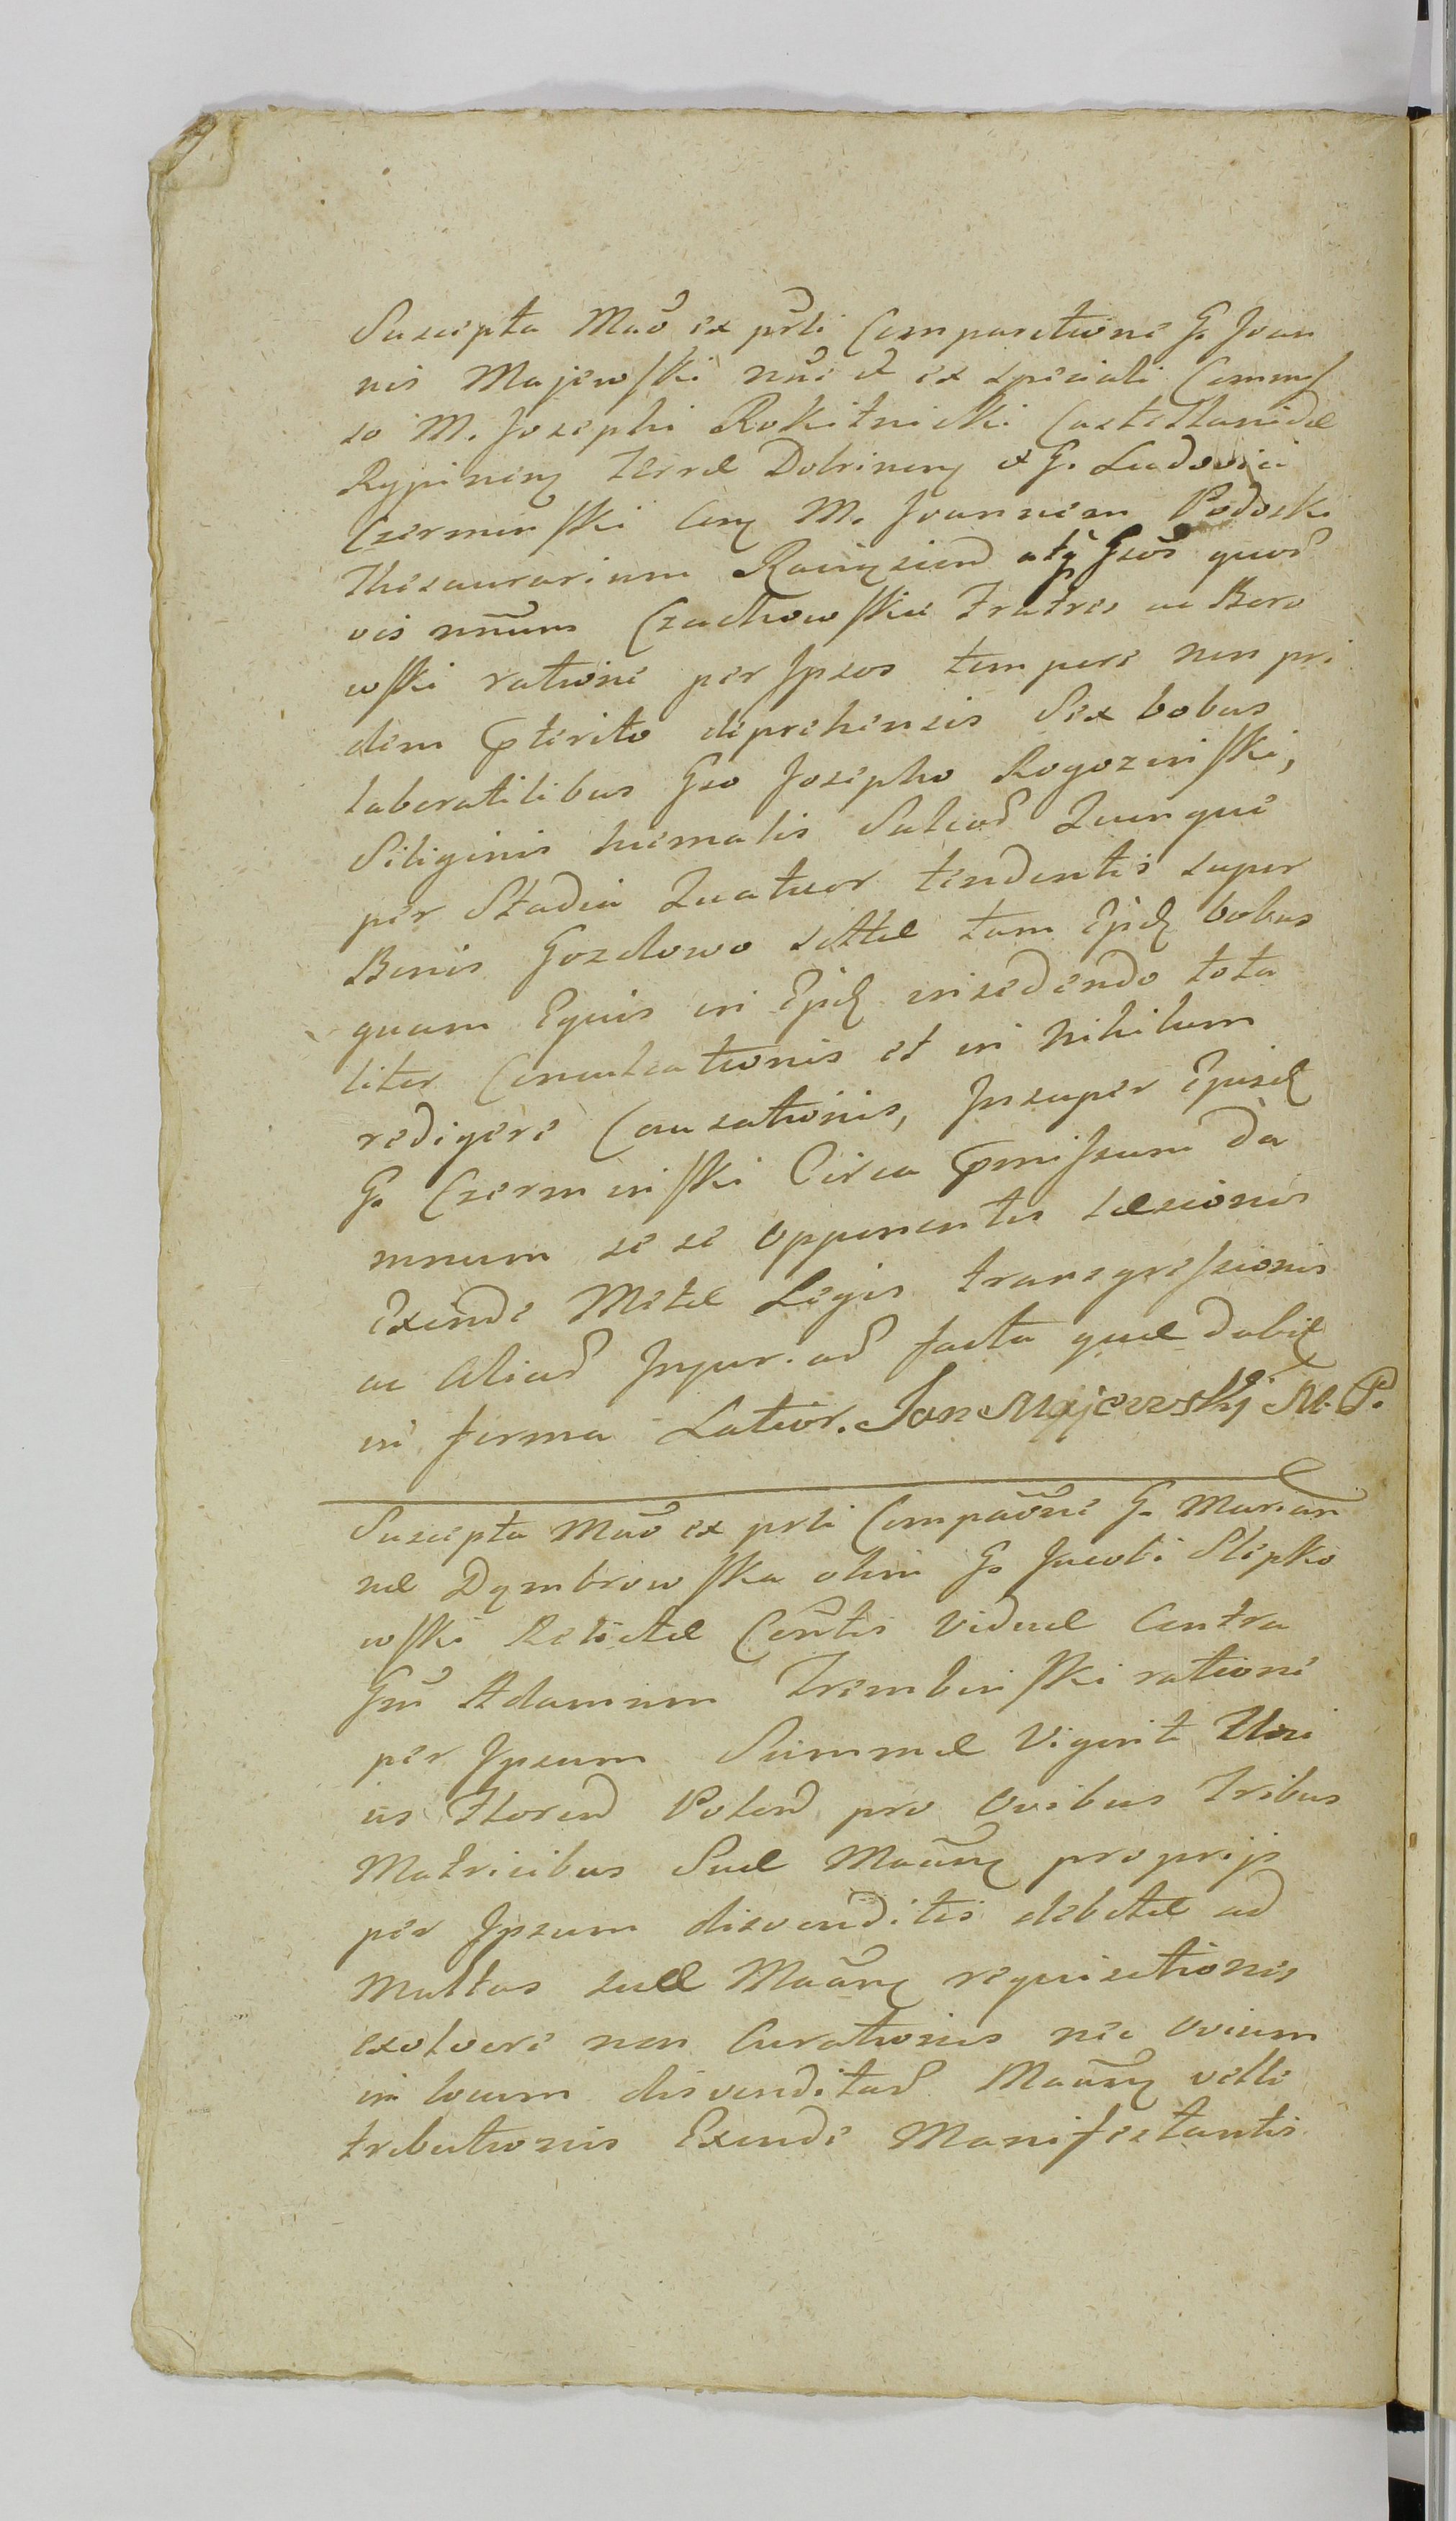 Suscepta Maõ ex prłi Comparitione G. Joan
nis Majewski nõie et ex speciali Commis
so M. Josephi Rokitnicki Castellanidæ
Rypinens Terræ Dobrinens et G. Ludovici
Czerminski Con M. Joannem Podoski
Thesaurarium Raciąziens atq Gsos quos
vis nnum Czachowskie Fratres ac Boro
wski ratione per Ipsos tempore non pri
dem pterito deprehensis Sex bobus
laboratilibus Gso Josepho Rogozinski,
Siliginis hiemalis Sulcos Quinque
per Stadia Quatuor tendentis super
Bonis Gozdowo sittæ tam Ejusd bobus
quam Equis in Ejusd insedendo tota
liter Conculcationis et in nihilum
redigere Causationis, Insuper Ejusd
G. Czerminski Circa pmissum Da
mnum se se opponentis læsionis
Exinde Metæ Legis transgressionis
ac Alias Injur. ad facta quæ dabit
in forma Latior. Jan Majewski M. P.
Suscepta Maõ ex prłi Compaõne G. Marian
næ Dąmbrowska olim G. Jacobi Slepko
wski Relictæ Contis Viduæ Contra
Gm Adamum Trembinski ratione
per Ipsum Summæ Viginti Uni
us Floren Polon pro Ovibus Tribus
Matricibus Suæ Maãns proprijs
per Ipsum disvenditis debitæ ad
Multas suæ Maãns requisitiones
exolvere non Curationis nec Ovium
in locum disvenditas Maãns velle
tributionis Exinde Manifestantis